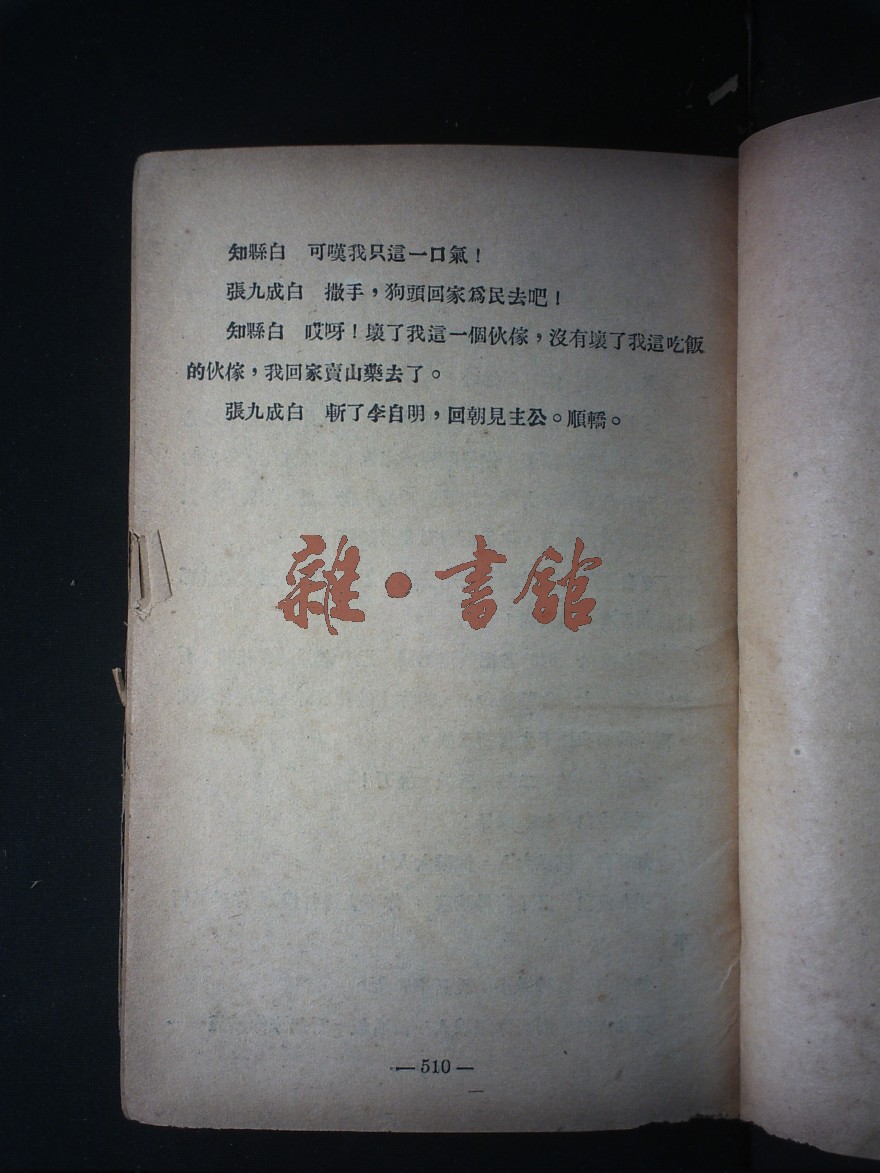 知縣白　可嘆我只這一口氣！
張九成白　撒手，狗頭回家爲民去吧！
知縣白　哎呀！壞了我這一個伙傢，沒有壞了我這吃飯
的伙傢，我回家賣山藥去了。
張九成白　斬了李自明，回朝見主公。順轎。
雜·書館
— 510 —